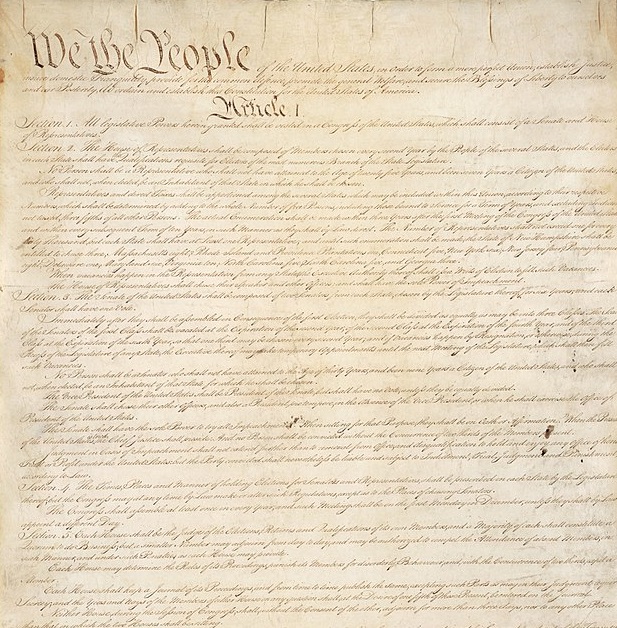 We the People of the United States, in Order to form a more perfect Union, establish Justice,
insure domestic Tranquility, provide for the common defence, promote the general Welfare, and secure the Blessings of Liberty to ourselves
and our Posterity, do ordain and establish this Constitution for the United States of America.
Article. I.
Section. 1. All legislative Powers herein granted shall be vested in a Congress of the United States, which shall consist of a Senate and House
of Representatives.
Section. 2. The House of Representatives shall be composed of Members chosen every second Year by the People of the several States, and the Electors
in each State shall have Qualifications requisite for Electors of the most numerous Branch of the State Legislature.
No Person shall be a Representative who shall not have attained to the Age of twenty five Years, and been seven Years a Citizen of the United States,
and who shall not, when elected, be an Inhabitant of that State in which he shall be chosen.
Representatives and direct Taxes shall be apportioned among the several States which may be included within this Union, according to their respective
Numbers, which shall be determined by adding to the whole Number of free Persons, including those bound to Service for a Term of Years, and excluding Indians
not taxed, three fifths of all other Persons. The actual Enumeration shall be made within three Years after the first Meeting of the Congress of the United States,
and within every subsequent Term of ten Years, in such Manner as they shall by Law direct. The Number of Representatives shall not exceed one for every
thirty Thousand, but each State shall have at Least one Representative; and until such enumeration shall be made, the State of New Hampshire shall be
entitled to chuse three, Massachusetts eight, Rhode-Island and Providence Plantations one, Connecticut five, New-York six, New Jersey four, Pennsylvania
eight, Delaware one, Maryland six, Virginia ten, North Carolina five, South Carolina five, and Georgia three.
When vacancies happen in the Representation from any State, the Executive Authority thereof shall issue Writs of Election to fill such Vacancies.
The House of Representatives shall chuse their Speaker and other Officers; and shall have the sole Power of Impeachment.
Section. 3. The Senate of the United States shall be composed of two Senators from each State, chosen by the Legislature thereof, for six Years; and each
Senator shall have one Vote.
Immediately after they shall be assembled in Consequence of the first Election, they shall be divided as equally as may be into three Classes. The Seats
of the Senators of the first Class shall be vacated at the Expiration of the second Year, of the second Class at the Expiration of the fourth Year, and of the third
Class at the Expiration of the sixth Year, so that one third may be chosen every second Year; and if Vacancies happen by Resignation, or otherwise, during the
Recess of the Legislature of any State, the Executive thereof may make temporary Appointments until the next Meeting of the Legislature, which shall then fill
such Vacancies.
No Person shall be a Senator who shall not have attained to the Age of thirty Years, and been nine Years a Citizen of the United States, and who shall
not, when elected, be an Inhabitant of that State for which he shall be chosen.
The Vice President of the United States shall be President of the Senate, but shall have no Vote, unless they be equally divided.
The Senate shall chuse their other Officers, and also a President pro tempore, in the Absence of the Vice President, or when he shall exercise the Office of
President of the United States.
The Senate shall have the sole Power to try all Impeachments. When sitting for that Purpose, they shall be on Oath or Affirmation. When the President
of the United States is tried, the Chief Justice shall preside: And no Person shall be convicted without the Concurrence of two thirds of the Members present.
Judgment in Cases of Impeachment shall not extend further than to removal from Office, and disqualification to hold and enjoy any Office of honor,
Trust or Profit under the United States: but the Party convicted shall nevertheless be liable and subject to Indictment, Trial, Judgment and Punishment,
according to Law.
Section. 4. The Times, Places and Manner of holding Elections for Senators and Representatives, shall be prescribed in each State by the Legislature
thereof; but the Congress may at any time by Law make or alter such Regulations, except as to the Places of chusing Senators.
The Congress shall assemble at least once in every Year, and such Meeting shall be on the first Monday in December, unless they shall by Law
appoint a different Day.
Section. 5. Each House shall be the Judge of the Elections, Returns and Qualifications of its own Members, and a Majority of each shall constitute a
Quorum to do Business; but a smaller Number may adjourn from day to day, and may be authorized to compel the Attendance of absent Members, in
such Manner, and under such Penalties as each House may provide.
Each House may determine the Rules of its Proceedings, punish its Members for disorderly Behaviour, and, with the Concurrence of two thirds, expel a
Member.
Each House shall keep a Journal of its Proceedings, and from time to time publish the same, excepting such Parts as may in their Judgment require
Secrecy; and the Yeas and Nays of the Members of either House on any question shall, at the Desire of one fifth of those Present, be entered on the Journal.
Neither House, during the Session of Congress, shall, without the Consent of the other, adjourn for more than three days, nor to any other Place
than that in which the two Houses shall be sitting.